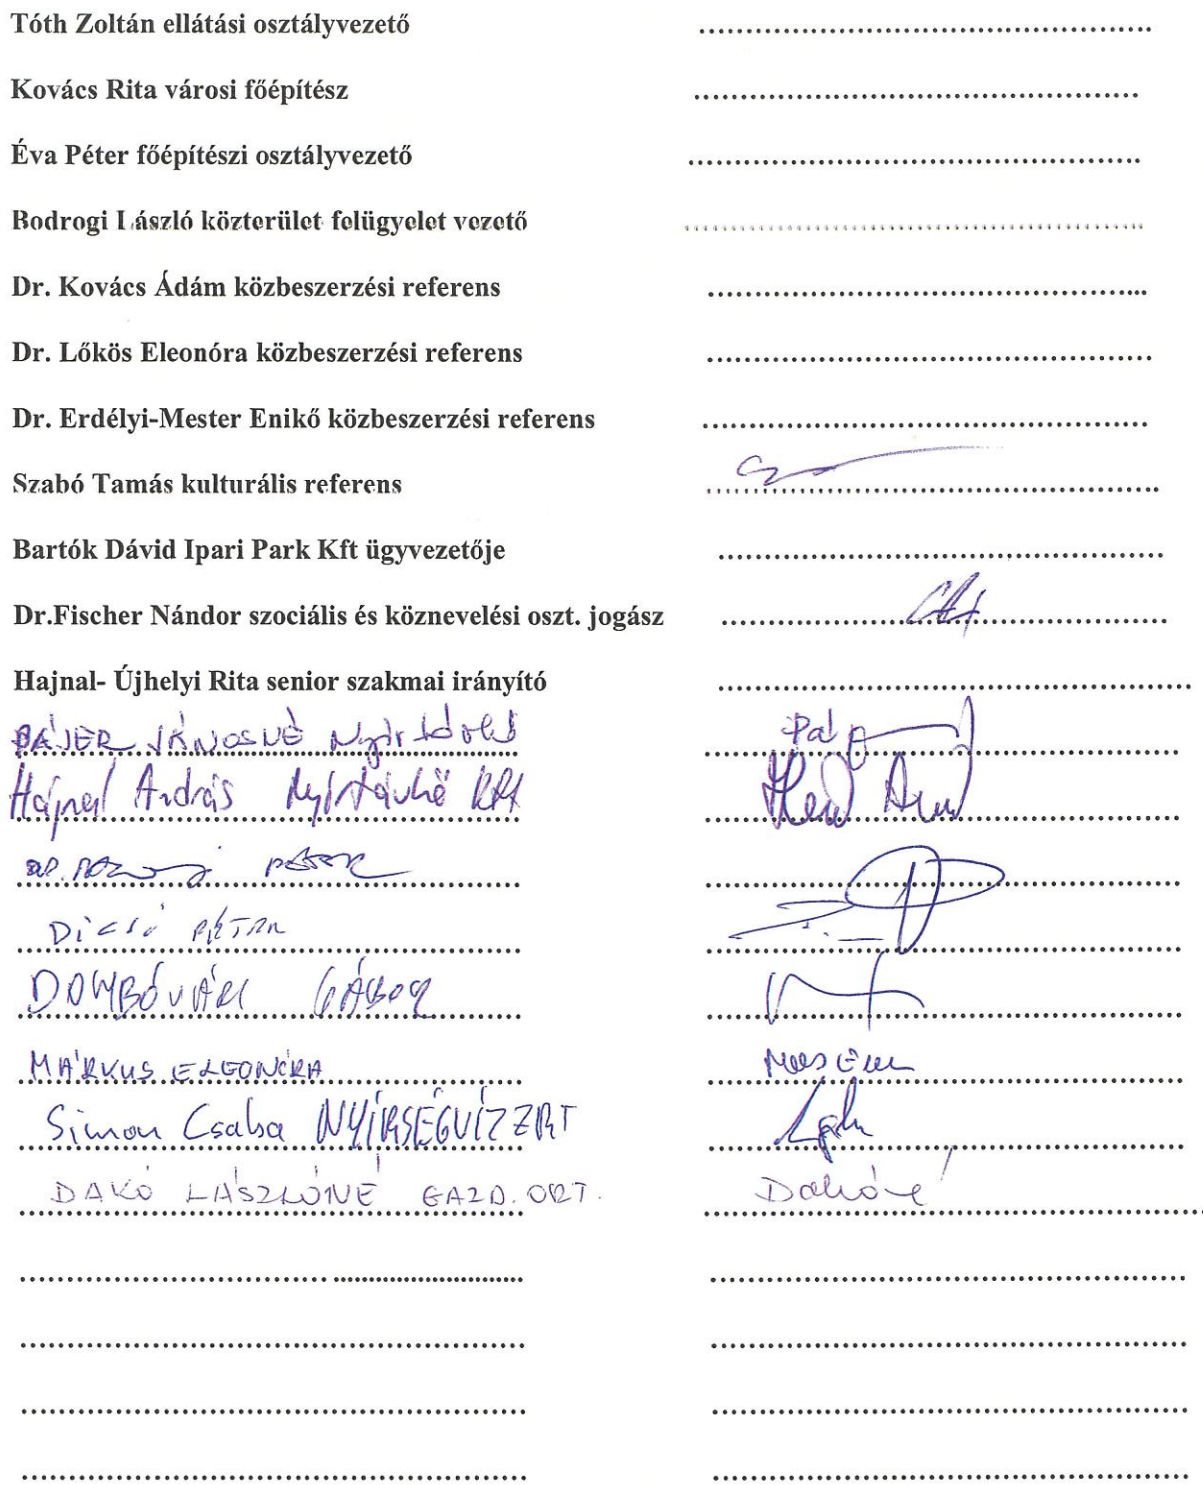 Tóth Zoltán ellátási osztályvezető
Kovács Rita városi főépítész
Éva Péter főépítészi osztályvezető
Bodrogi László közterület felügyelet vezető
Dr. Kovács Ádám közbeszerzési referens
Dr. Lőkös Eleonóra közbeszerzési referens
Dr. Erdélyi-Mester Enikő közbeszerzési referens
Szabó Tamás kulturális referens
Bartók Dávid Ipari Park Kft ügyvezetője
Dr.Fischer Nándor szociális és köznevelési oszt. jogász
Hajnal- Újhelyi Rita senior szakmai irányító
JÁNOSNÉ
Hajnal András Nyírtávhő Kft
DR. PÉTER
Dicső PÉTER
DOMBÓVÁRI GÁBOR
MÁRKUS ELEONÓRA
Simon Csaba NYÍRSÉGVÍZ ZRT
DAKÓ LÁSZLÓNÉ GAZD. Dakóné